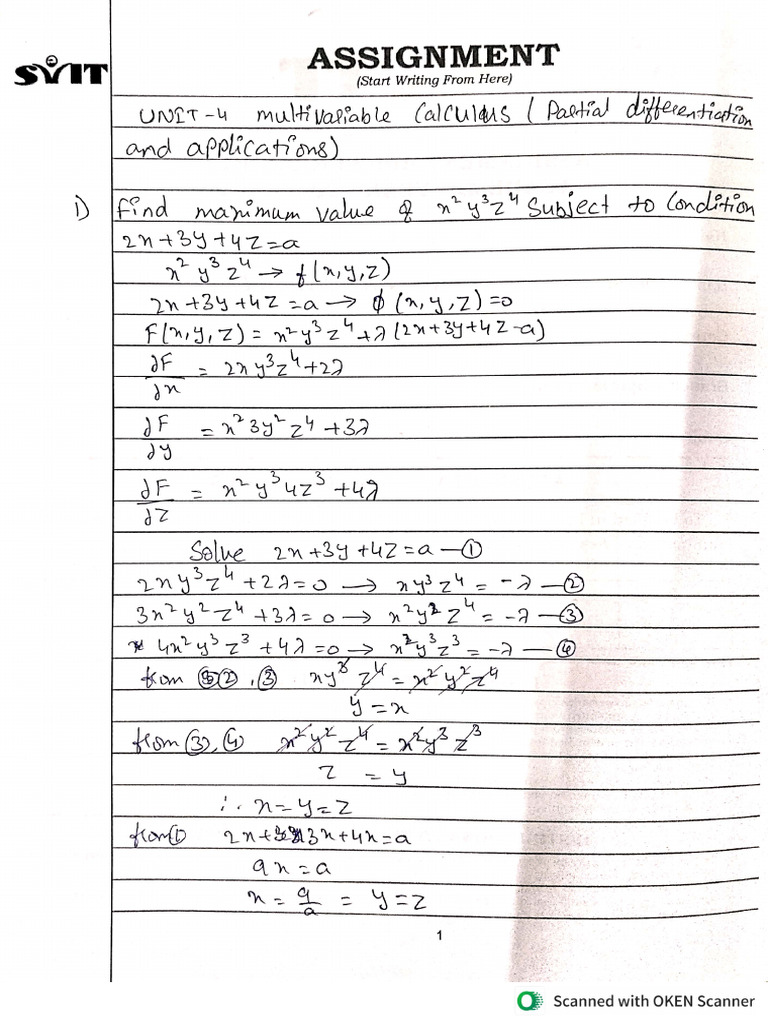 SVIT
ASSIGNMENT
(Start Writing From Here)
UNIT-4 multivariable Calculus ( Partial differentiation
and applications)
1) Find maximum value of x² y³ z⁴ Subject to Condition
2x+3y+4z=a
x² y³ z⁴ → f(x,y,z)
2x+3y+4z=a → φ (x,y,z)=0
F(x,y,z) = x² y³ z⁴ + λ (2x+3y+4z-a)
∂F/∂x = 2xy³z⁴+2λ
∂F/∂y = x² 3y² z⁴ + 3λ
∂F/∂z = x² y³ 4z³ + 4λ
Solve 2x+3y+4z=a — ①
2xy³z⁴ + 2λ=0 → xy³z⁴ = -λ — ②
3x²y²z⁴ + 3λ=0 → x²y²z⁴ = -λ — ③
4x²y³z³ + 4λ=0 → x²y³z³ = -λ — ④
from ②, ③ xy³z⁴ = x²y²z⁴
y = x
from ③, ④ x²y²z⁴ = x²y³z³
z = y
∴ x=y=z
from ① 2x+3x+4x=a
9x=a
x = 9/a = y=z
1
Scanned with OKEN Scanner